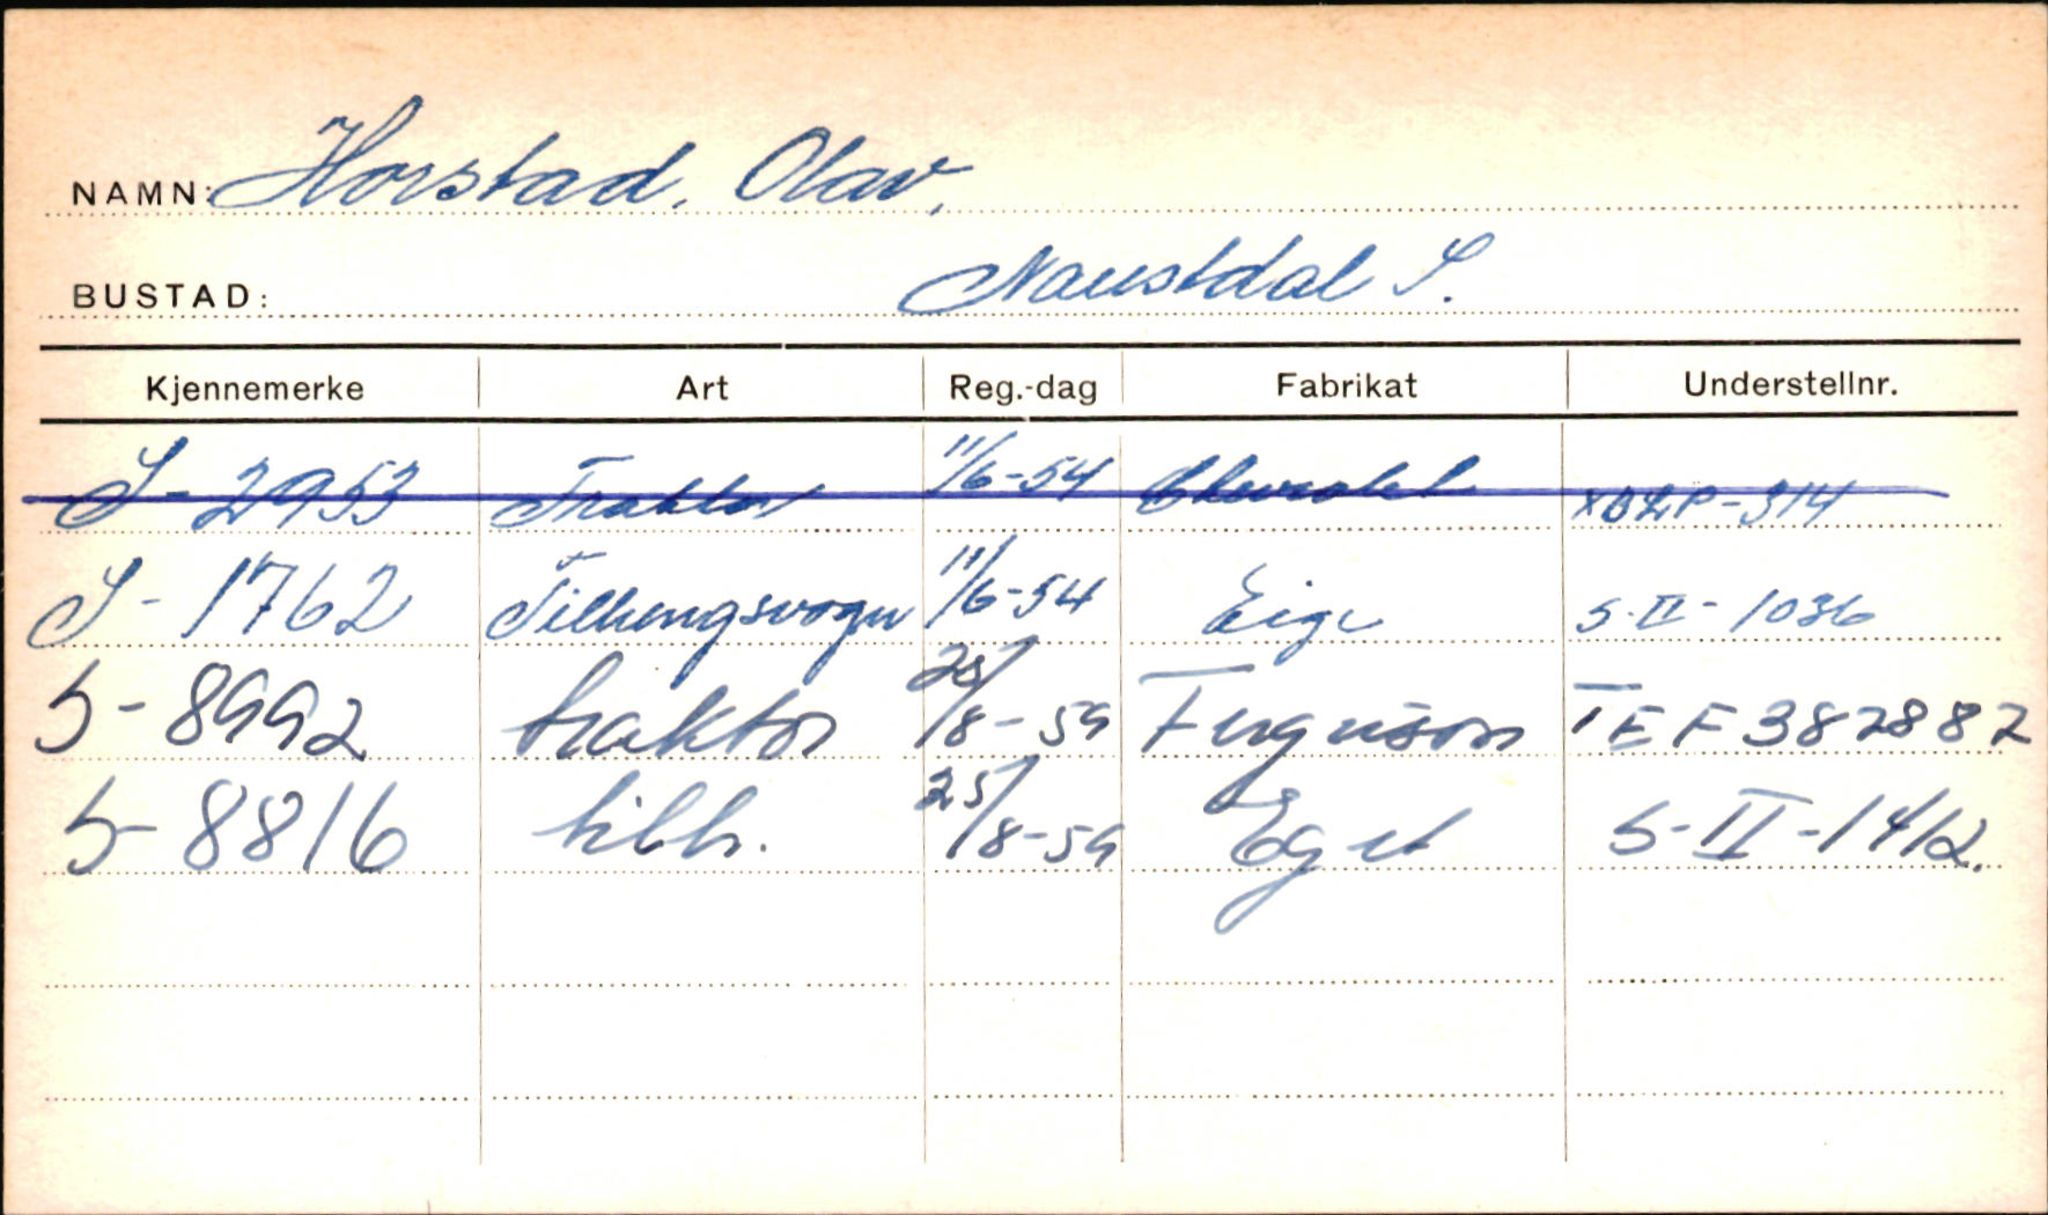 NAMN: Horstad, Olav.
BUSTAD: Naustdal S.
Kjennemerke Art Reg.-dag Fabrikat Understellnr.
S - 2953 Traktor 11/6-54 Chevrolet
S - 1762 Tilhengsvogn 11/6-54 Eige S-II-1036
S - 8992 traktor 25/8-59 Ferguson TEF 382882
S - 8816 tilh. 25/8-59 Eget S-II-1412.